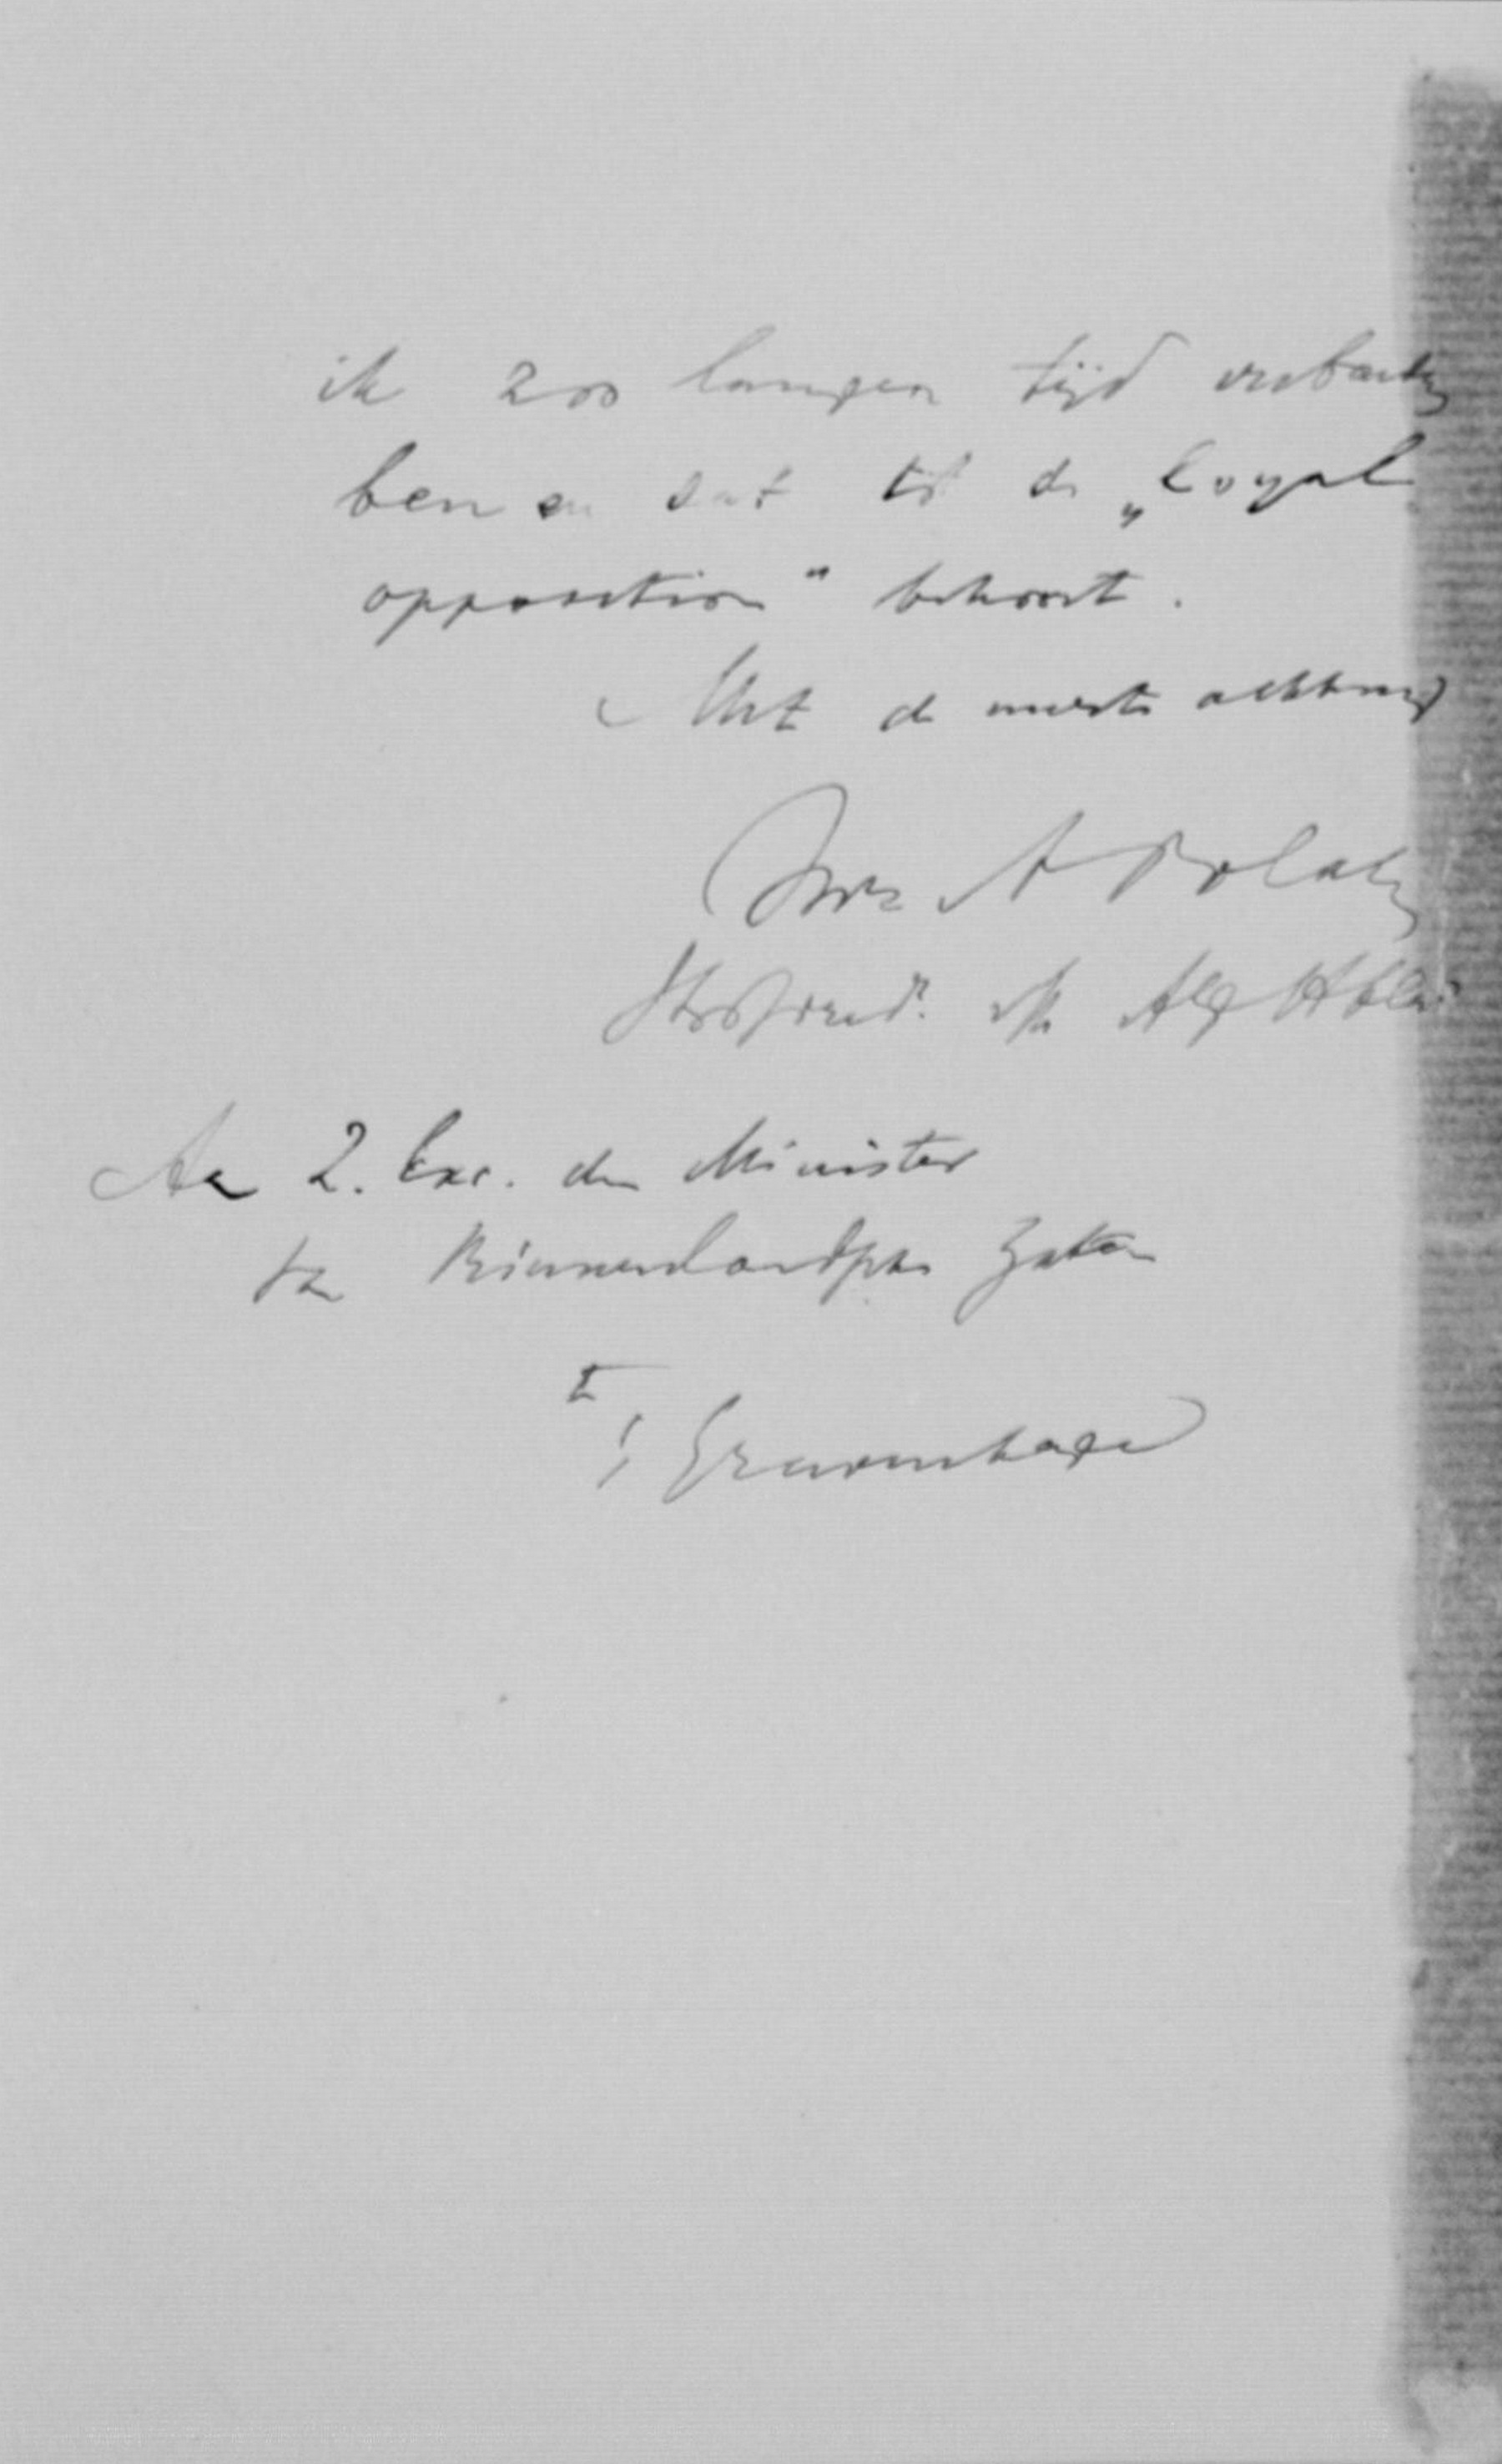 ik zoo langen tijd verbonden
ben en dat tot de „loyal
opposition" behoort.
Met de meeste achting
A Polak
Hoofdred. Alg Hbld
Aan Z. Exc. den Minister
van Binnenlandsche Zaken
te
's Gravenhage